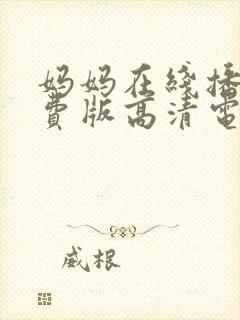 妈妈在线播
费版高清电
威根